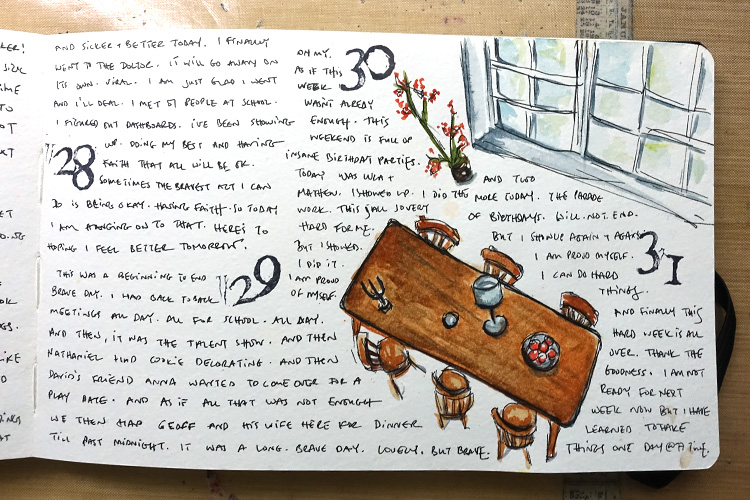 LER!
SICK
TIME
TO
NOT
AND SICKER + BETTER TODAY. I FINALLY
WENT TO THE DOCTOR. IT WILL GO AWAY ON
ITS OWN. VIRAL. I AM JUST GLAD I WENT
AND I'LL DEAL. I MET 51 PEOPLE AT SCHOOL.
I FIGURED OUT DASHBOARDS. I'VE BEEN SHOWING
28
UP. DOING MY BEST AND HAVING
FAITH THAT ALL WILL BE OK.
SOMETIMES THE BRAVEST ART I CAN
DO IS BEING OKAY. HAVING FAITH. SO TODAY
I AM HANGING ON TO THAT. HERE'S TO
HOPING I FEEL BETTER TOMORROW.
29
THIS WAS A BEGINNING TO END
BRAVE DAY. I HAD BACK TO BACK
MEETINGS ALL DAY. ALL FOR SCHOOL. ALL DAY.
AND THEN, IT WAS THE TALENT SHOW. AND THEN
NATHANIEL HAD COOKIE DECORATING AND THEN
DAVID'S FRIEND ANNA WANTED TO COME OVER FOR A
PLAY DATE. AND AS IF ALL THAT WAS NOT ENOUGH
WE THEN HAD GEOFF AND HIS WIFE HERE FOR DINNER
TILL PAST MIDNIGHT. IT WAS A LONG. BRAVE DAY. LOVELY, BUT BRAVE.
30
OH MY.
AS IF THIS
WEEK
WASN'T ALREADY
ENOUGH. THIS
WEEKEND IS FULL OF
INSANE BIRTHDAY PARTIES.
TODAY WAS
MATHEW. I SHOWED UP. I DID THE
WORK. THIS IS ALL VERY
HARD FOR ME.
BUT I SHOWED.
I DID IT.
I AM PROUD
OF MYSELF.
31
AND TWO
MORE TODAY. THE PARADE
OF BIRTHDAYS. WILL. NOT. END.
BUT I SHOW UP AGAIN + AGAIN
I AM PROUD MYSELF.
I CAN DO HARD
THINGS.
AND FINALLY THIS
HARD WEEK IS ALL
OVER. THANK THE
GOODNESS. I AM NOT
READY FOR NEXT
WEEK NOW BUT I HAVE
LEARNED TO TAKE
THINGS ONE DAY @ A time.